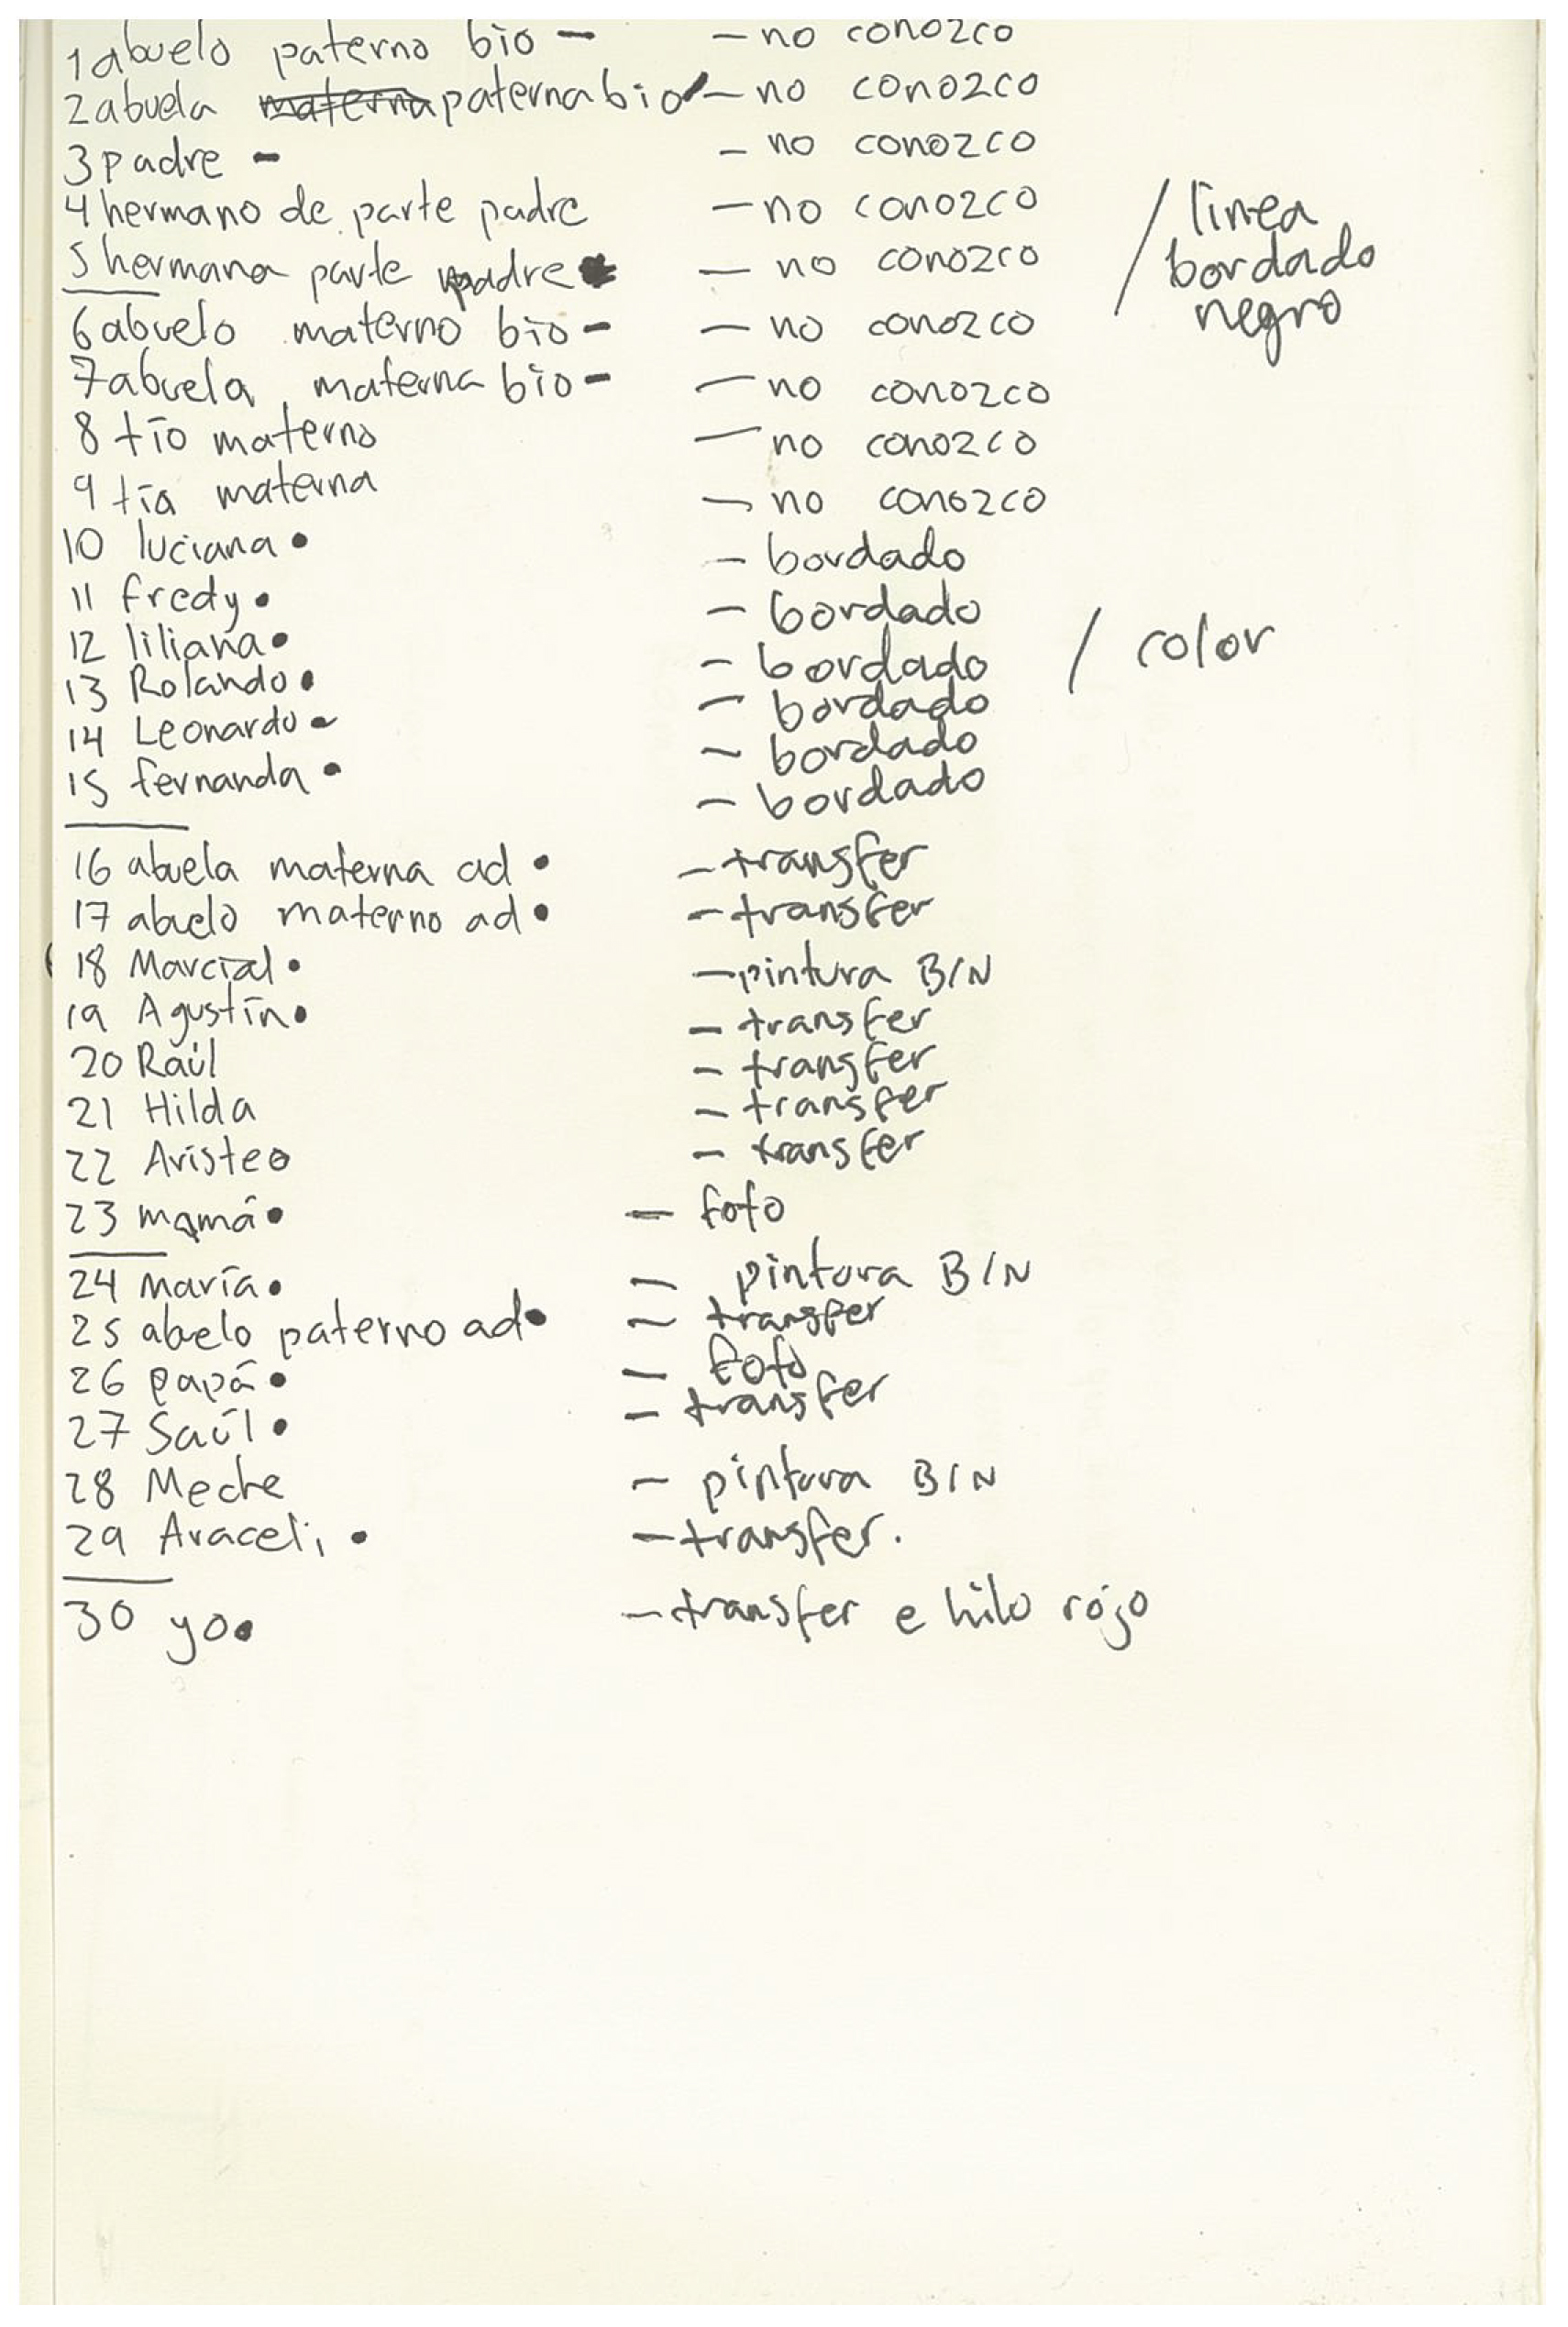 1 abuelo paterno bio - - no conozco
2 abuela materna paterna bio - no conozco
3 padre - - no conozco
4 hermano de parte padre - no conozco
5 hermana parte padre - no conozco
/ línea bordado negro
6 abuelo materno bio - - no conozco
7 abuela materna bio - - no conozco
8 tío materno - no conozco
9 tía materna - no conozco
10 luciana • - bordado
11 fredy • - bordado
12 liliana • - bordado
/ color
13 Rolando • - bordado
14 Leonardo • - bordado
15 fernanda • - bordado
16 abuela materna ad • - transfer
17 abuelo materno ad • - transfer
18 Marcial • - pintura B/N
19 Agustín • - transfer
20 Raúl - transfer
21 Hilda - transfer
22 Aristeo - transfer
23 mamá • - foto
24 María • - pintura B/N
25 abelo paterno ad • - transfer
26 papá • - foto
27 Saúl • - transfer
28 Meche - pintura B/N
29 Araceli • - transfer.
30 yo • - transfer e hilo rojo